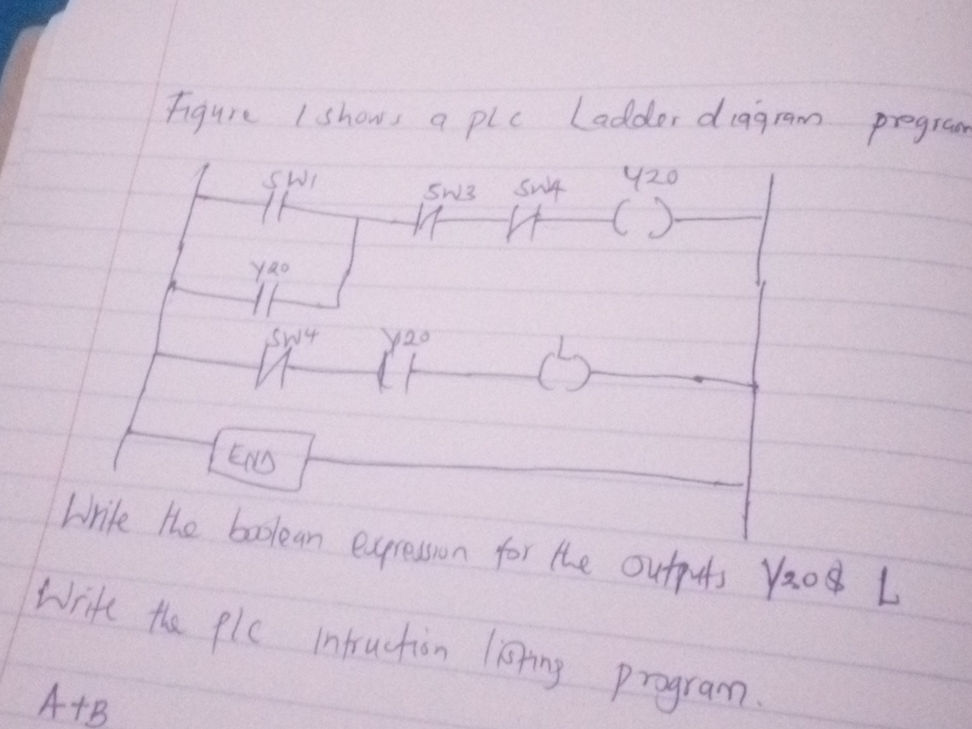 Figure 1 shows a PLC Ladder diagram program
SW1 SW3 SW4 Y20
Y20
SW4 Y20 L
END
Write the boolean expression for the outputs Y20 & L
Write the PLC intruction listing program.
A+B